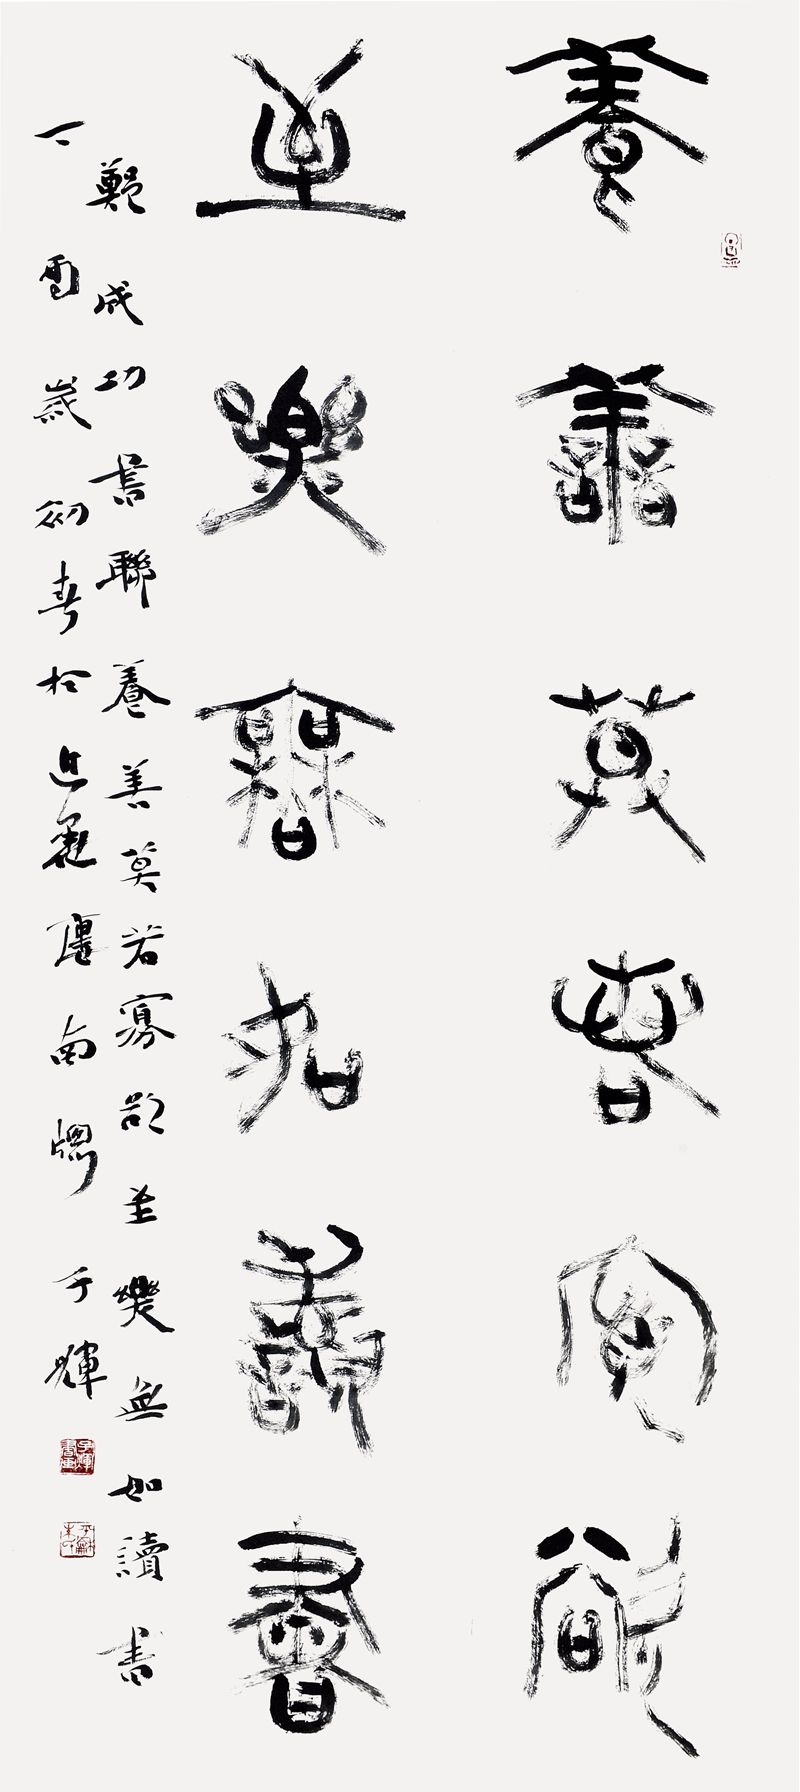 養善莫若寡欲
至樂無如讀書
鄭成功書聯養善莫若寡欲至樂無如讀書
丁酉歲初春於近廬南牕于輝